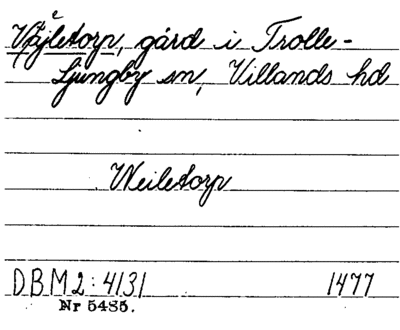 Väjletorp, gård i Trolle-
Ljungby sn, Villands hd
Weiletorp
DBM 2:4131 1477
Nr 5485.